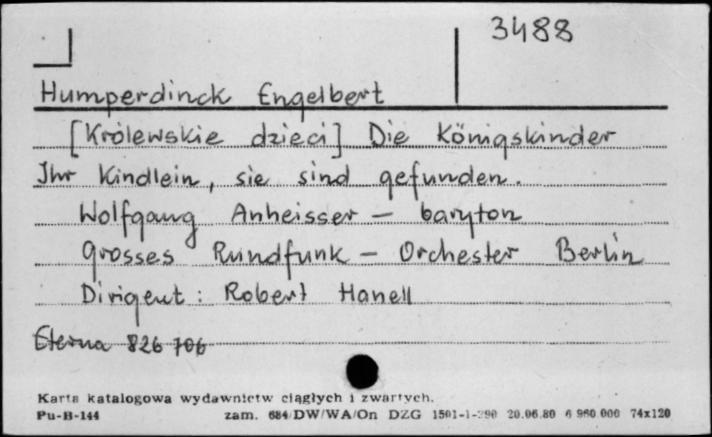 3488
Humperdinck Engelbert
[Królewskie dzieci] Die Königskinder
Ihr Kindlein, sie sind gefunden.
Wolfgang Anheisser – baryton
Grosses Rundfunk – Orchester Berlin
Dirigent: Robert Hanell
Eterna 826 706
Karta katalogowa wydawnictw ciągłych i zwartych.
Pu-B-144 zam. 684/DW/WA/On DZG 1501-1- 20.06.80 6 960 000 74x120